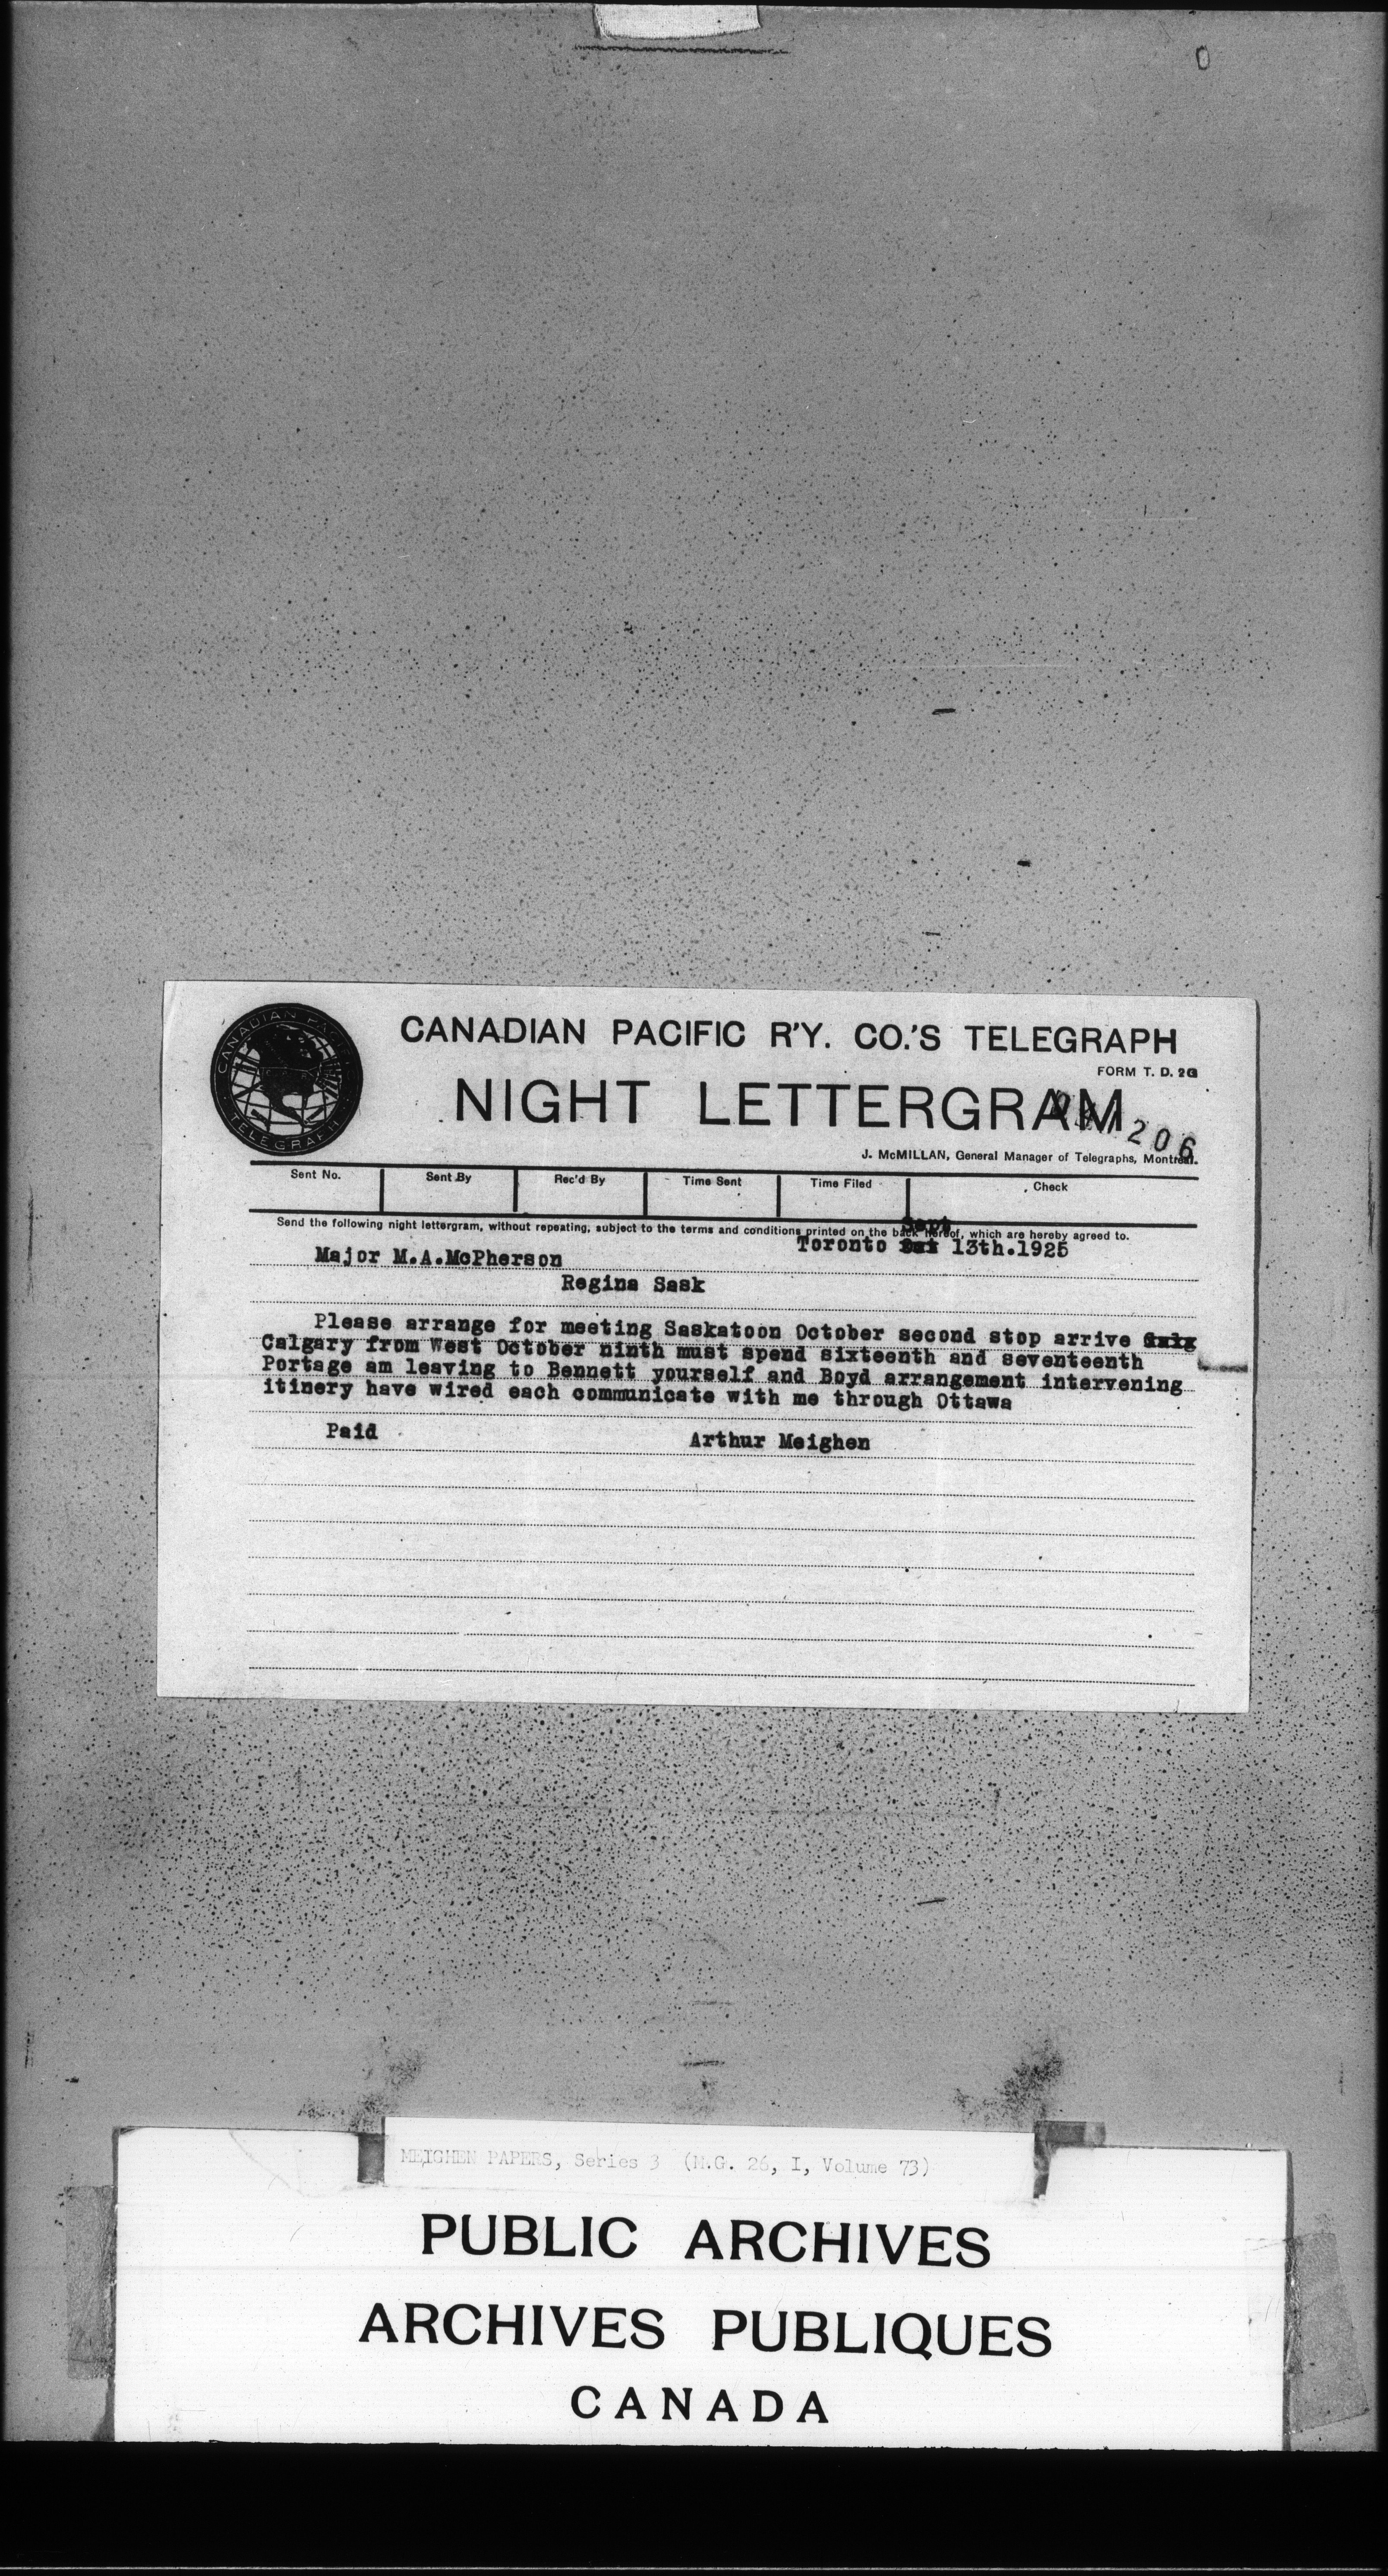 CANADIAN PACIFIC
TELEGRAPH
CANADIAN PACIFIC R'Y. CO.'S TELEGRAPH
FORM T. D. 2G
NIGHT LETTERGRAM
206
J. McMILLAN, General Manager of Telegraphs, Montreal.
Sent No. Sent By Rec'd By Time Sent Time Filed Check
Send the following night lettergram, without repeating, subject to the terms and conditions printed on the back hereof, which are hereby agreed to.
Sept
Toronto 13th.1925
Major M.A.McPherson
Regina Sask
Please arrange for meeting Saskatoon October second stop arrive
Calgary from West October ninth must spend sixteenth and seventeenth
Portage am leaving to Bennett yourself and Boyd arrangement intervening
itinery have wired each communicate with me through Ottawa
Paid Arthur Meighen
MEIGHEN PAPERS, Series 3 (M.G. 26, I, Volume 73)
PUBLIC ARCHIVES
ARCHIVES PUBLIQUES
CANADA